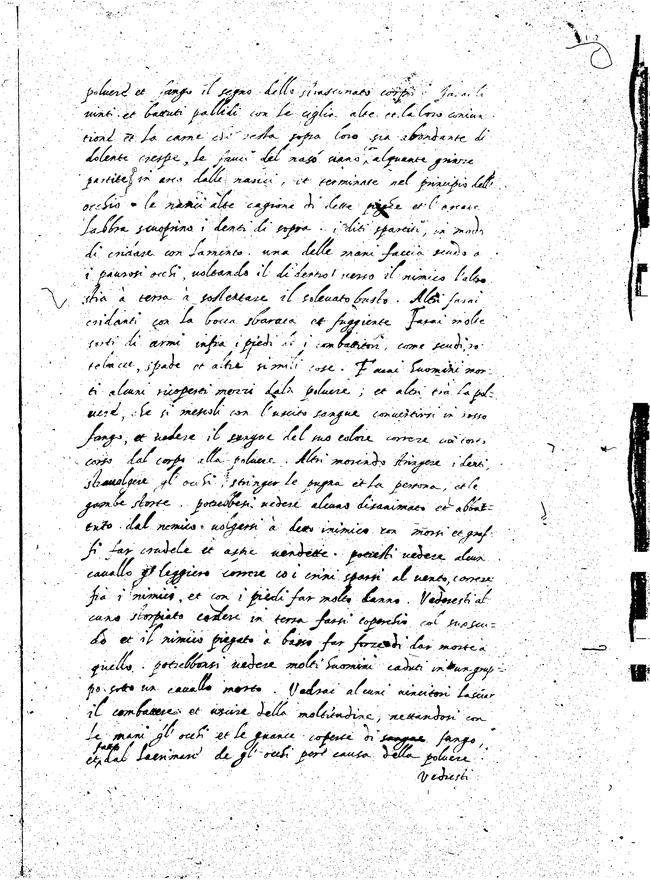 polvere et fango il segno dello strascinato corpo. farai li
vinti et battuti pallidi con le ciglia alte et la loro coniun
tione et la carne che resta sopra loro sia abondante di
dolente crespe, le fauci del naso siano alquante grinze
partite in arco dalle narici, et terminate nel principio dell'
occhio. le narici alte cagione di dette pieghe et l'arcate
labbra scuoprino i denti di sopra. i diti spartiti, in modo
di cridare con lamento. una delle mani faccia scudo a
i paurosi occhi, voltando il di dentro verso il nimico l'altra
stia à terra à sostentare il solevato busto. Altri farai
cridanti con la bocca sbarata et fuggiente Farai molte
sorti di armi infra i piedi de i combattitori, come scudi,
lancie, spade et altre simili cose. Farai huomini mor-
ti alcuni ricoperti mezzi dala polvere; et altri tra la pol-
vere, che si mescoli con l'uscito sangue convertirsi in rosso
fango, et vedere il sangue del suo colore correre con torto
corso dal corpo alla polvere. Altri morendo stringere i denti,
stravolgere gl'occhi, stringer le pugna et la persona, et le
gambe storte. potrebbesi vedere alcuno disarmato et abbat-
tuto dal nemico volgersi à detto inimico con morsi et graf-
fi far crudele et aspre vendette. potresti vedere alcun
cavallo leggiero correre co i crini sparsi al vento, correre
fra i nimici, et con i piedi far molto danno. Vederesti al
cuno storpiato cadere in terra farsi coperchio col suo scu-
do et il nimico piegato à basso far forza di dar morte a
quello. potrebbonsi vedere molti huomini caduti in un grup-
po sotto un cavallo morto. Vedrai alcuni vincitori lasciar
il combattere et uscire della moltitudine, nettandosi con
le mani gl'occhi et le guance coperte di fango,
fatto
dal lacrimare de gl'occhi per causa della polvere
Vedresti